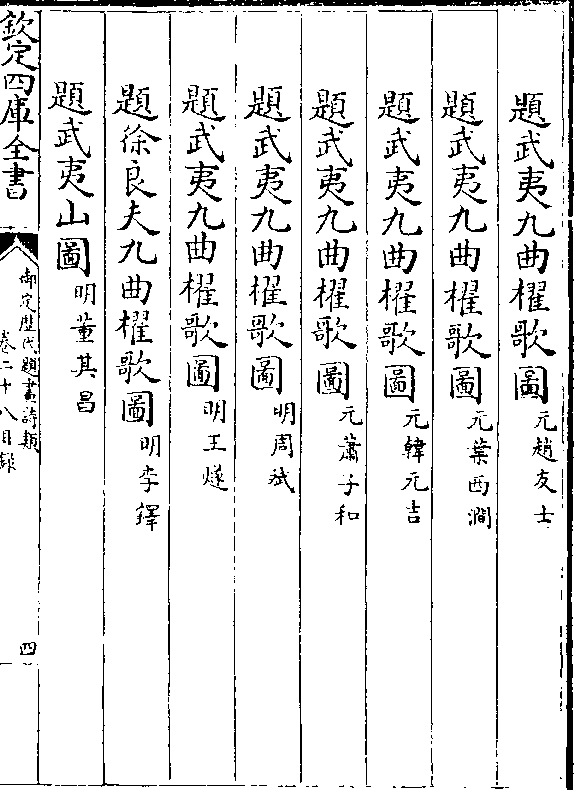 題武夷九曲櫂歌圖 元趙友士
題武夷九曲櫂歌圖 元葉西澗
題武夷九曲櫂歌圖 元韓元吉
題武夷九曲櫂歌圖 元蕭子和
題武夷九曲櫂歌圖 明周斌
題武夷九曲櫂歌圖 明王燧
題徐良夫九曲櫂歌圖 明李鐸
題武夷山圖 明董其昌
欽定四庫全書
御定歴代題畫詩類
卷二十八目録
四